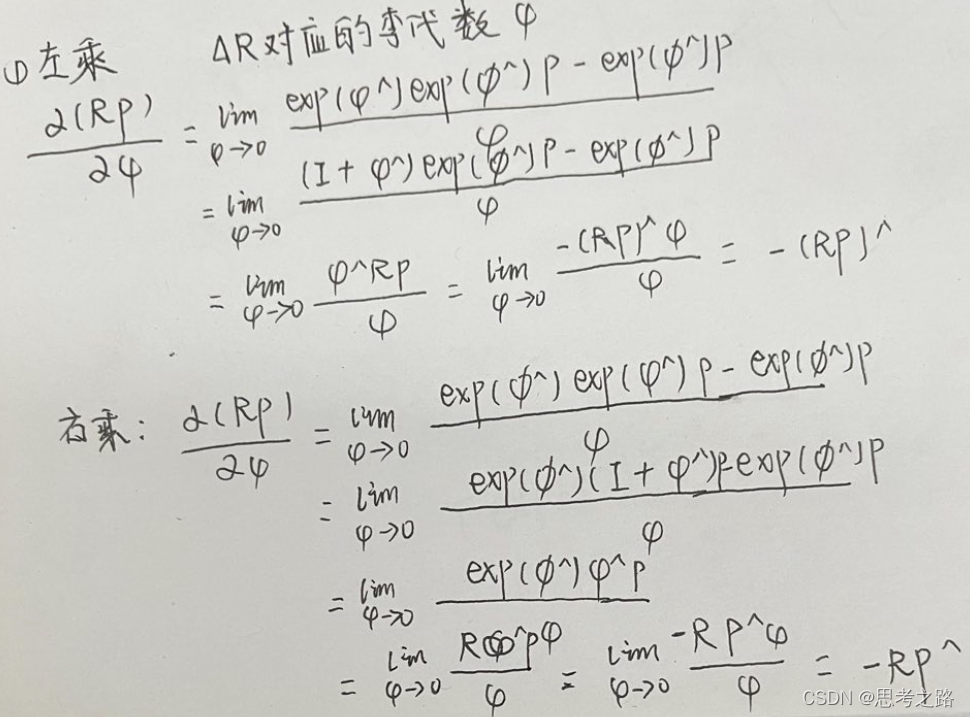 ① 左乘 ΔR对应的李代数 φ
∂(Rp)/∂φ = lim φ→0 (exp(φ^)exp(ϕ^)p - exp(ϕ^)p)/φ
= lim φ→0 ((I + φ^)exp(ϕ^)p - exp(ϕ^)p)/φ
= lim φ→0 φ^Rp/φ = lim φ→0 -(Rp)^φ/φ = -(Rp)^
右乘: ∂(Rp)/∂φ = lim φ→0 (exp(ϕ^)exp(φ^)p - exp(ϕ^)p)/φ
= lim φ→0 (exp(ϕ^)(I + φ^)p - exp(ϕ^)p)/φ
= lim φ→0 exp(ϕ^)φ^p/φ
= lim φ→0 Rφ^p/φ = lim φ→0 -Rp^φ/φ = -Rp^
CSDN @思考之路